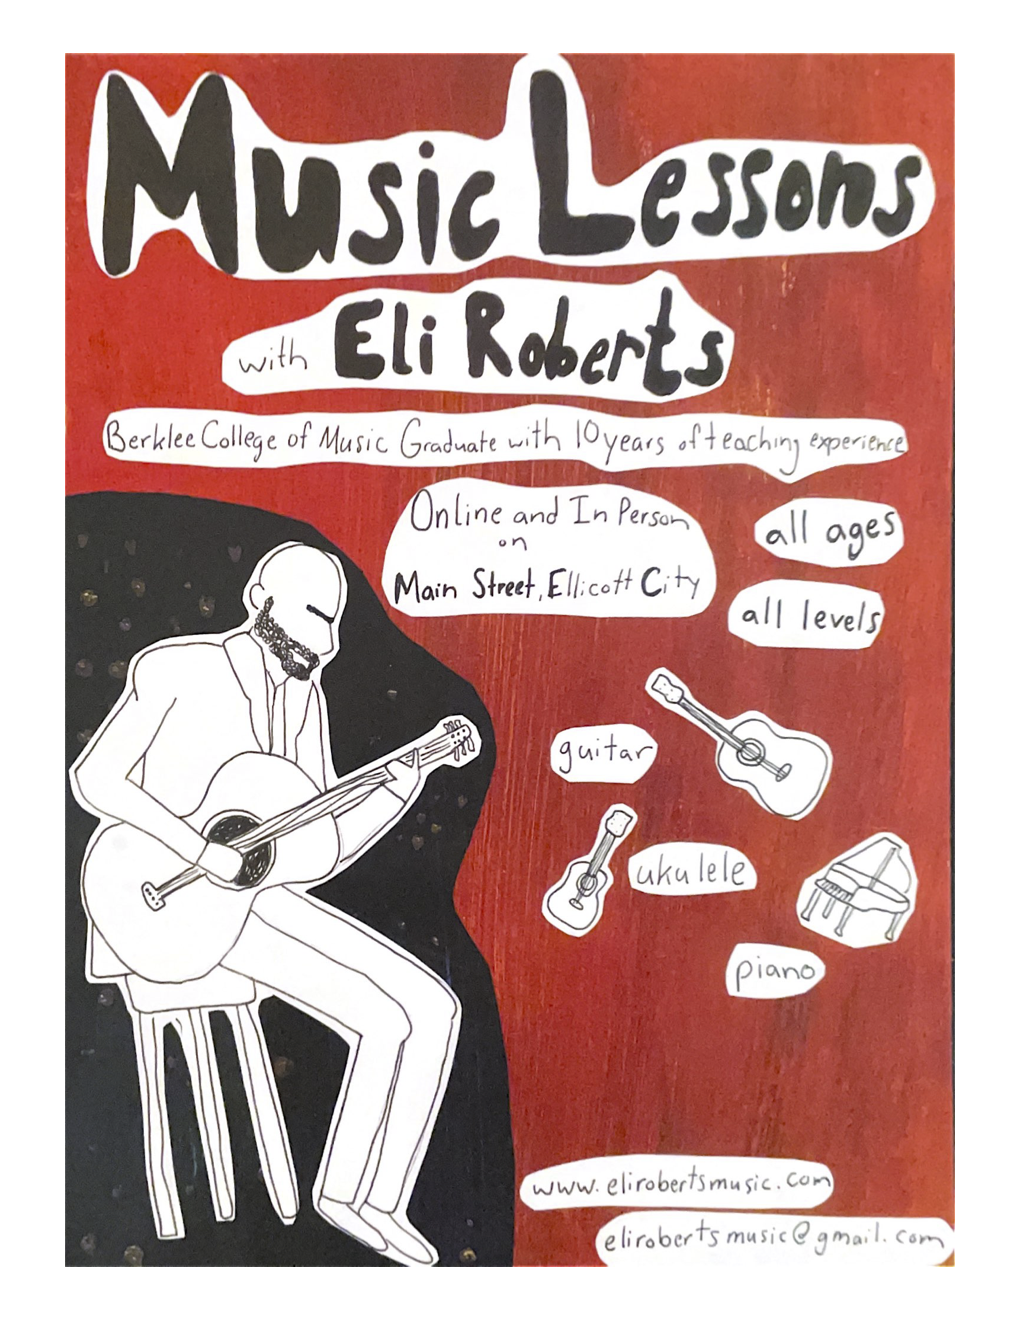 Music Lessons
with Eli Roberts
Berklee College of Music Graduate with 10 years of teaching experience
Online and In Person
on
Main Street, Ellicott City
all ages
all levels
guitar
ukulele
piano
www.elirobertsmusic.com
elirobertsmusic@gmail.com